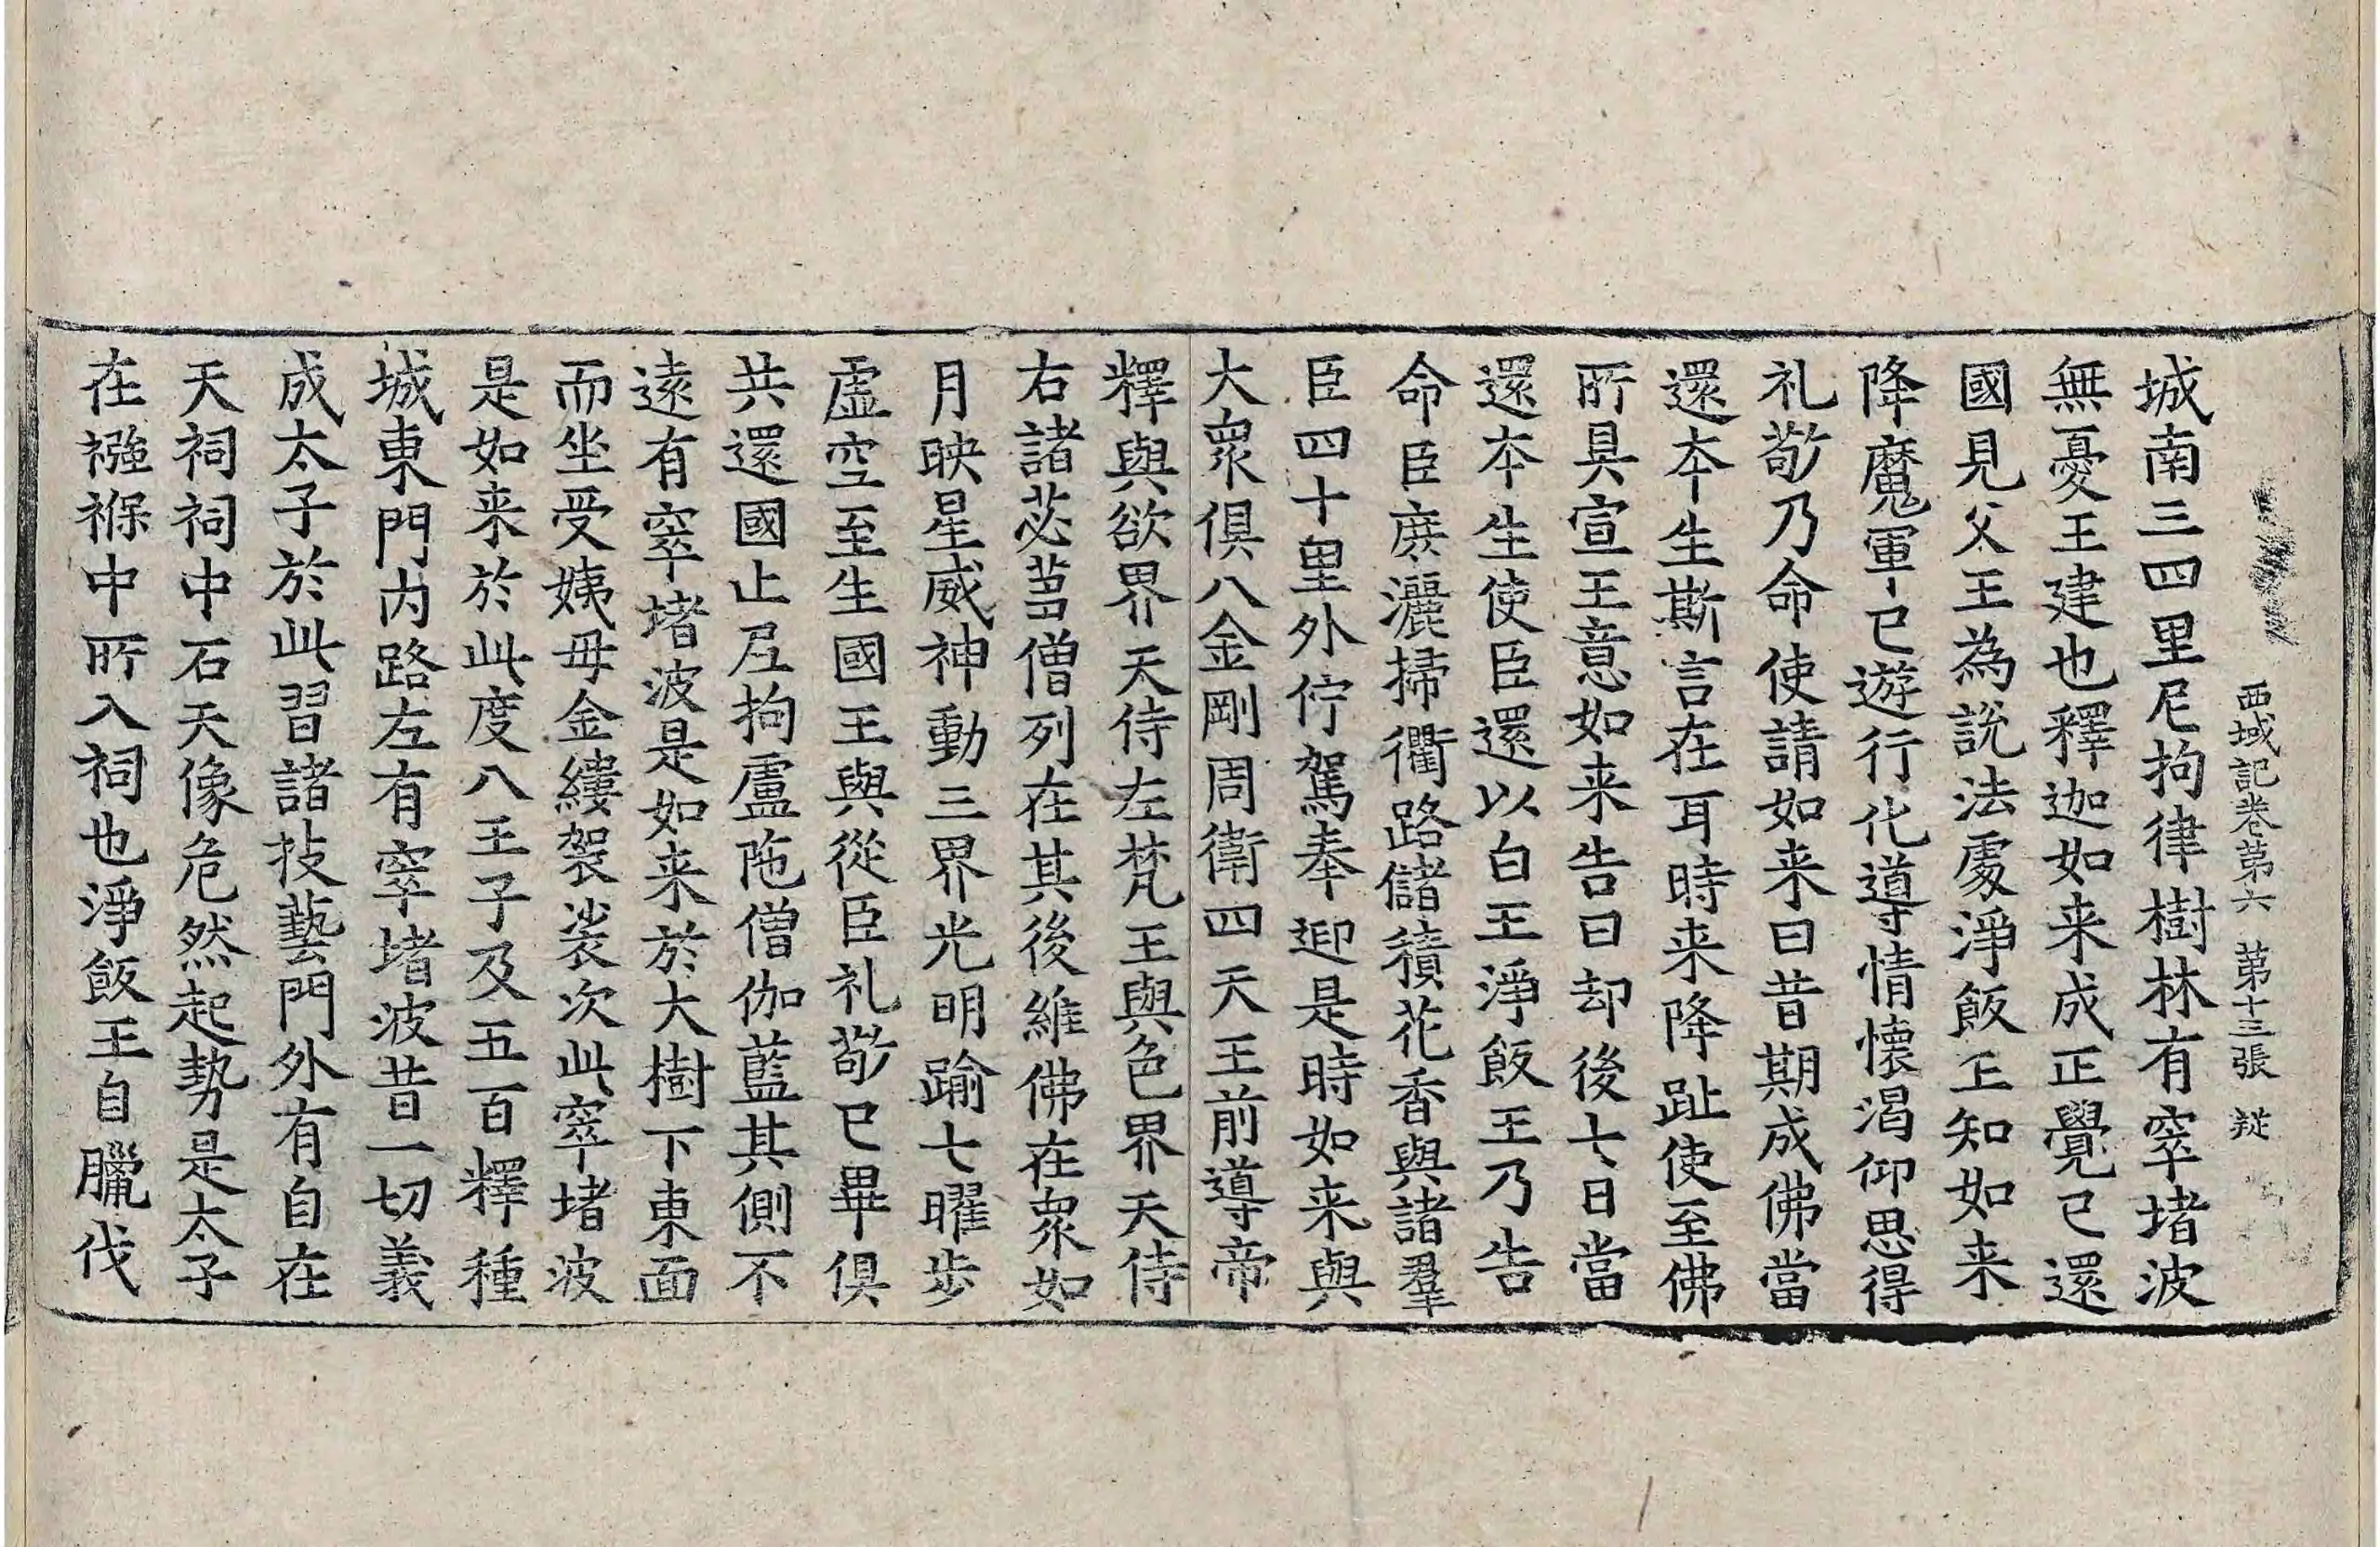 西域記卷第六 第十三張 㢟
城南三四里尼拘律樹林有窣堵波
無憂王建也釋迦如来成正覺已還
國見父王為說法處淨飯王知如来
降魔軍已遊行化導情懷渴仰思得
礼敬乃命使請如来曰昔期成佛當
還本生斯言在耳時来降趾使至佛
所具宣王意如来告曰却後七日當
還本生使臣還以白王淨飯王乃告
命臣庶灑掃衢路儲積花香與諸羣
臣四十里外佇駕奉迎是時如来與
大衆俱八金剛周衛四天王前導帝
釋與欲界天侍左梵王與色界天侍
右諸苾芻僧列在其後維佛在衆如
月映星威神動三界光明踰七曜步
虛空至生國王與從臣礼敬已畢俱
共還國止尼拘盧陁僧伽藍其側不
遠有窣堵波是如来於大樹下東面
而坐受姨母金縷袈裟次此窣堵波
是如来於此度八王子及五百釋種
城東門内路左有窣堵波昔一切義
成太子於此習諸技藝門外有自在
天祠祠中石天像危然起勢是太子
在襁褓中所入祠也淨飯王自臘伐